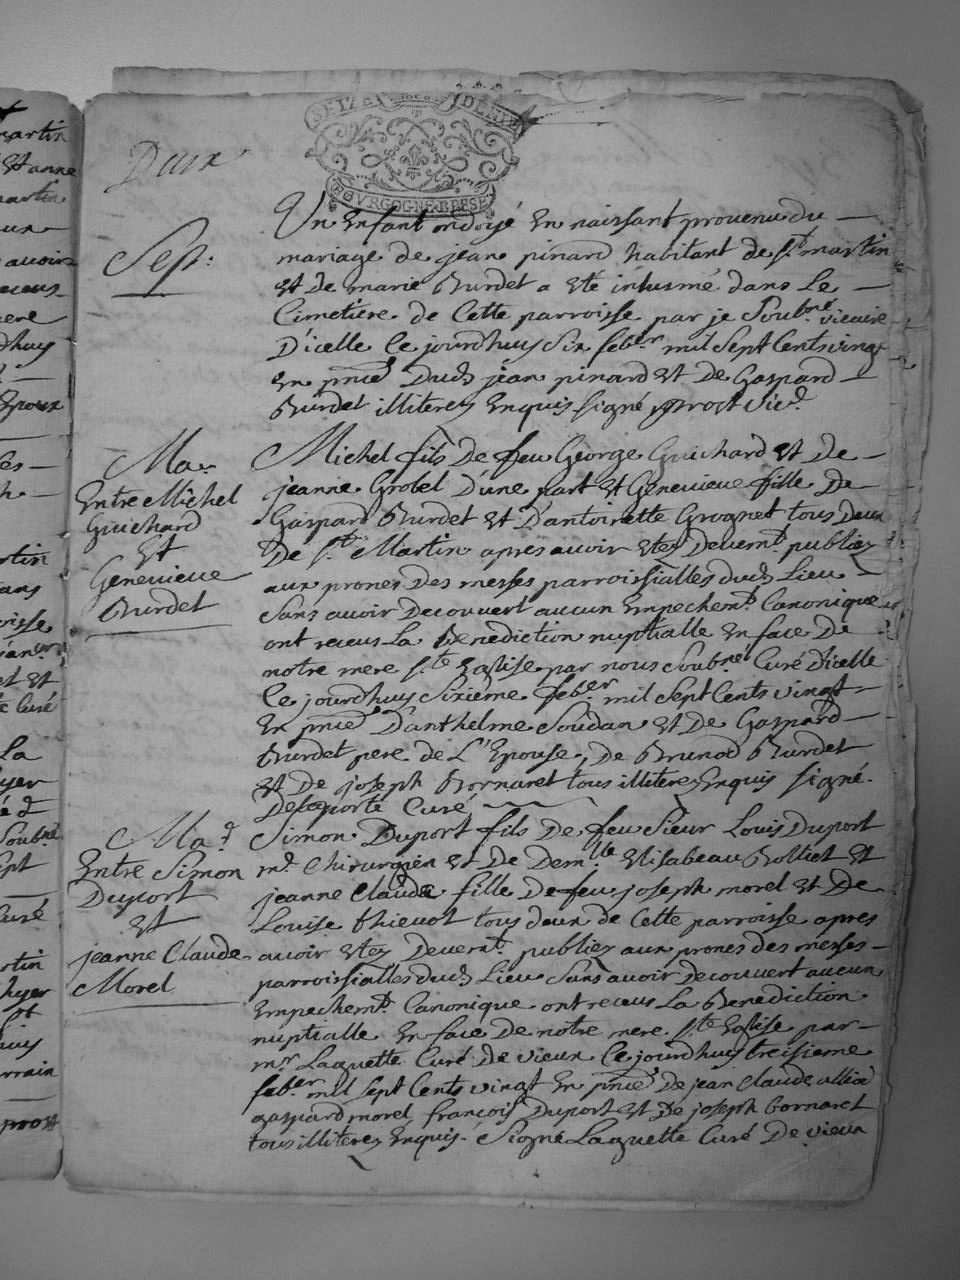 SEIZE DENIE
BOVRGOGNE BRESSE
Deux
Sep:
Un Enfant ondoyé En naissant provenu du
mariage de jean pinard habitant de st martin
Et De marie Burdet a Eté inhumé dans Le
Cimetiere de Cette parroisse par je Soubné vicaire
Dicelle Ce jourdhuy Six feber mil Sept Cents vingt
En pnce Dud jean pinard Et De Gaspard
Burdet illiterez Enquis signé prost vic.
Mar
Entre Michel
Guichard
Et
Genevieve
Burdet
Michel fils De feu George Guichard Et de
jeanne Grotel D'une part Et Genevieve fille De
Gaspard Burdet Et D'antoinette Grognet tous Deux
De st Martin apres avoir Etez Devemt publiez
aux prones Des messes parroissialles dud Lieu
Sans avoir Decouvert aucun Empechemt Canonique
ont receus La Benediction nuptialle En face De
notre mere ste Eglise par nous Soubné Curé Dicelle
Ce jourdhuy Sixieme feber mil Sept Cents vingt
En pnce D'anthelme Soudan Et De Gaspard
Burdet pere de L'Epouse, De Brunod Burdet
Et De joseph Bornaret tous illiterez Enquis signé
Delaporte Curé
Mar
Entre Simon
Duport
Et
jeanne Claude
Morel
Simon Duport fils De feu Sieur Louis Duport
me Chirurgien Et De Demlle Elisabeau Bolliet Et
jeanne Claude fille De feu joseph morel Et De
Louise thievot tous deux de Cette parroisse apres
avoir Etez Devemt publiez aux prones des messes
parroissialles dud Lieu Sans avoir Decouvert aucun
Empechemt Canonique ont receus La Benediction
nuptialle En face De notre mere ste Eglise par
mr Laguette Curé De vieux Ce jourdhuy treisieme
feber mil sept Cents vingt En pnce De jean Claude
gaspard morel françois Duport Et De joseph bornaret
tous illiterez Enquis. Signé Laguette Curé De vieux